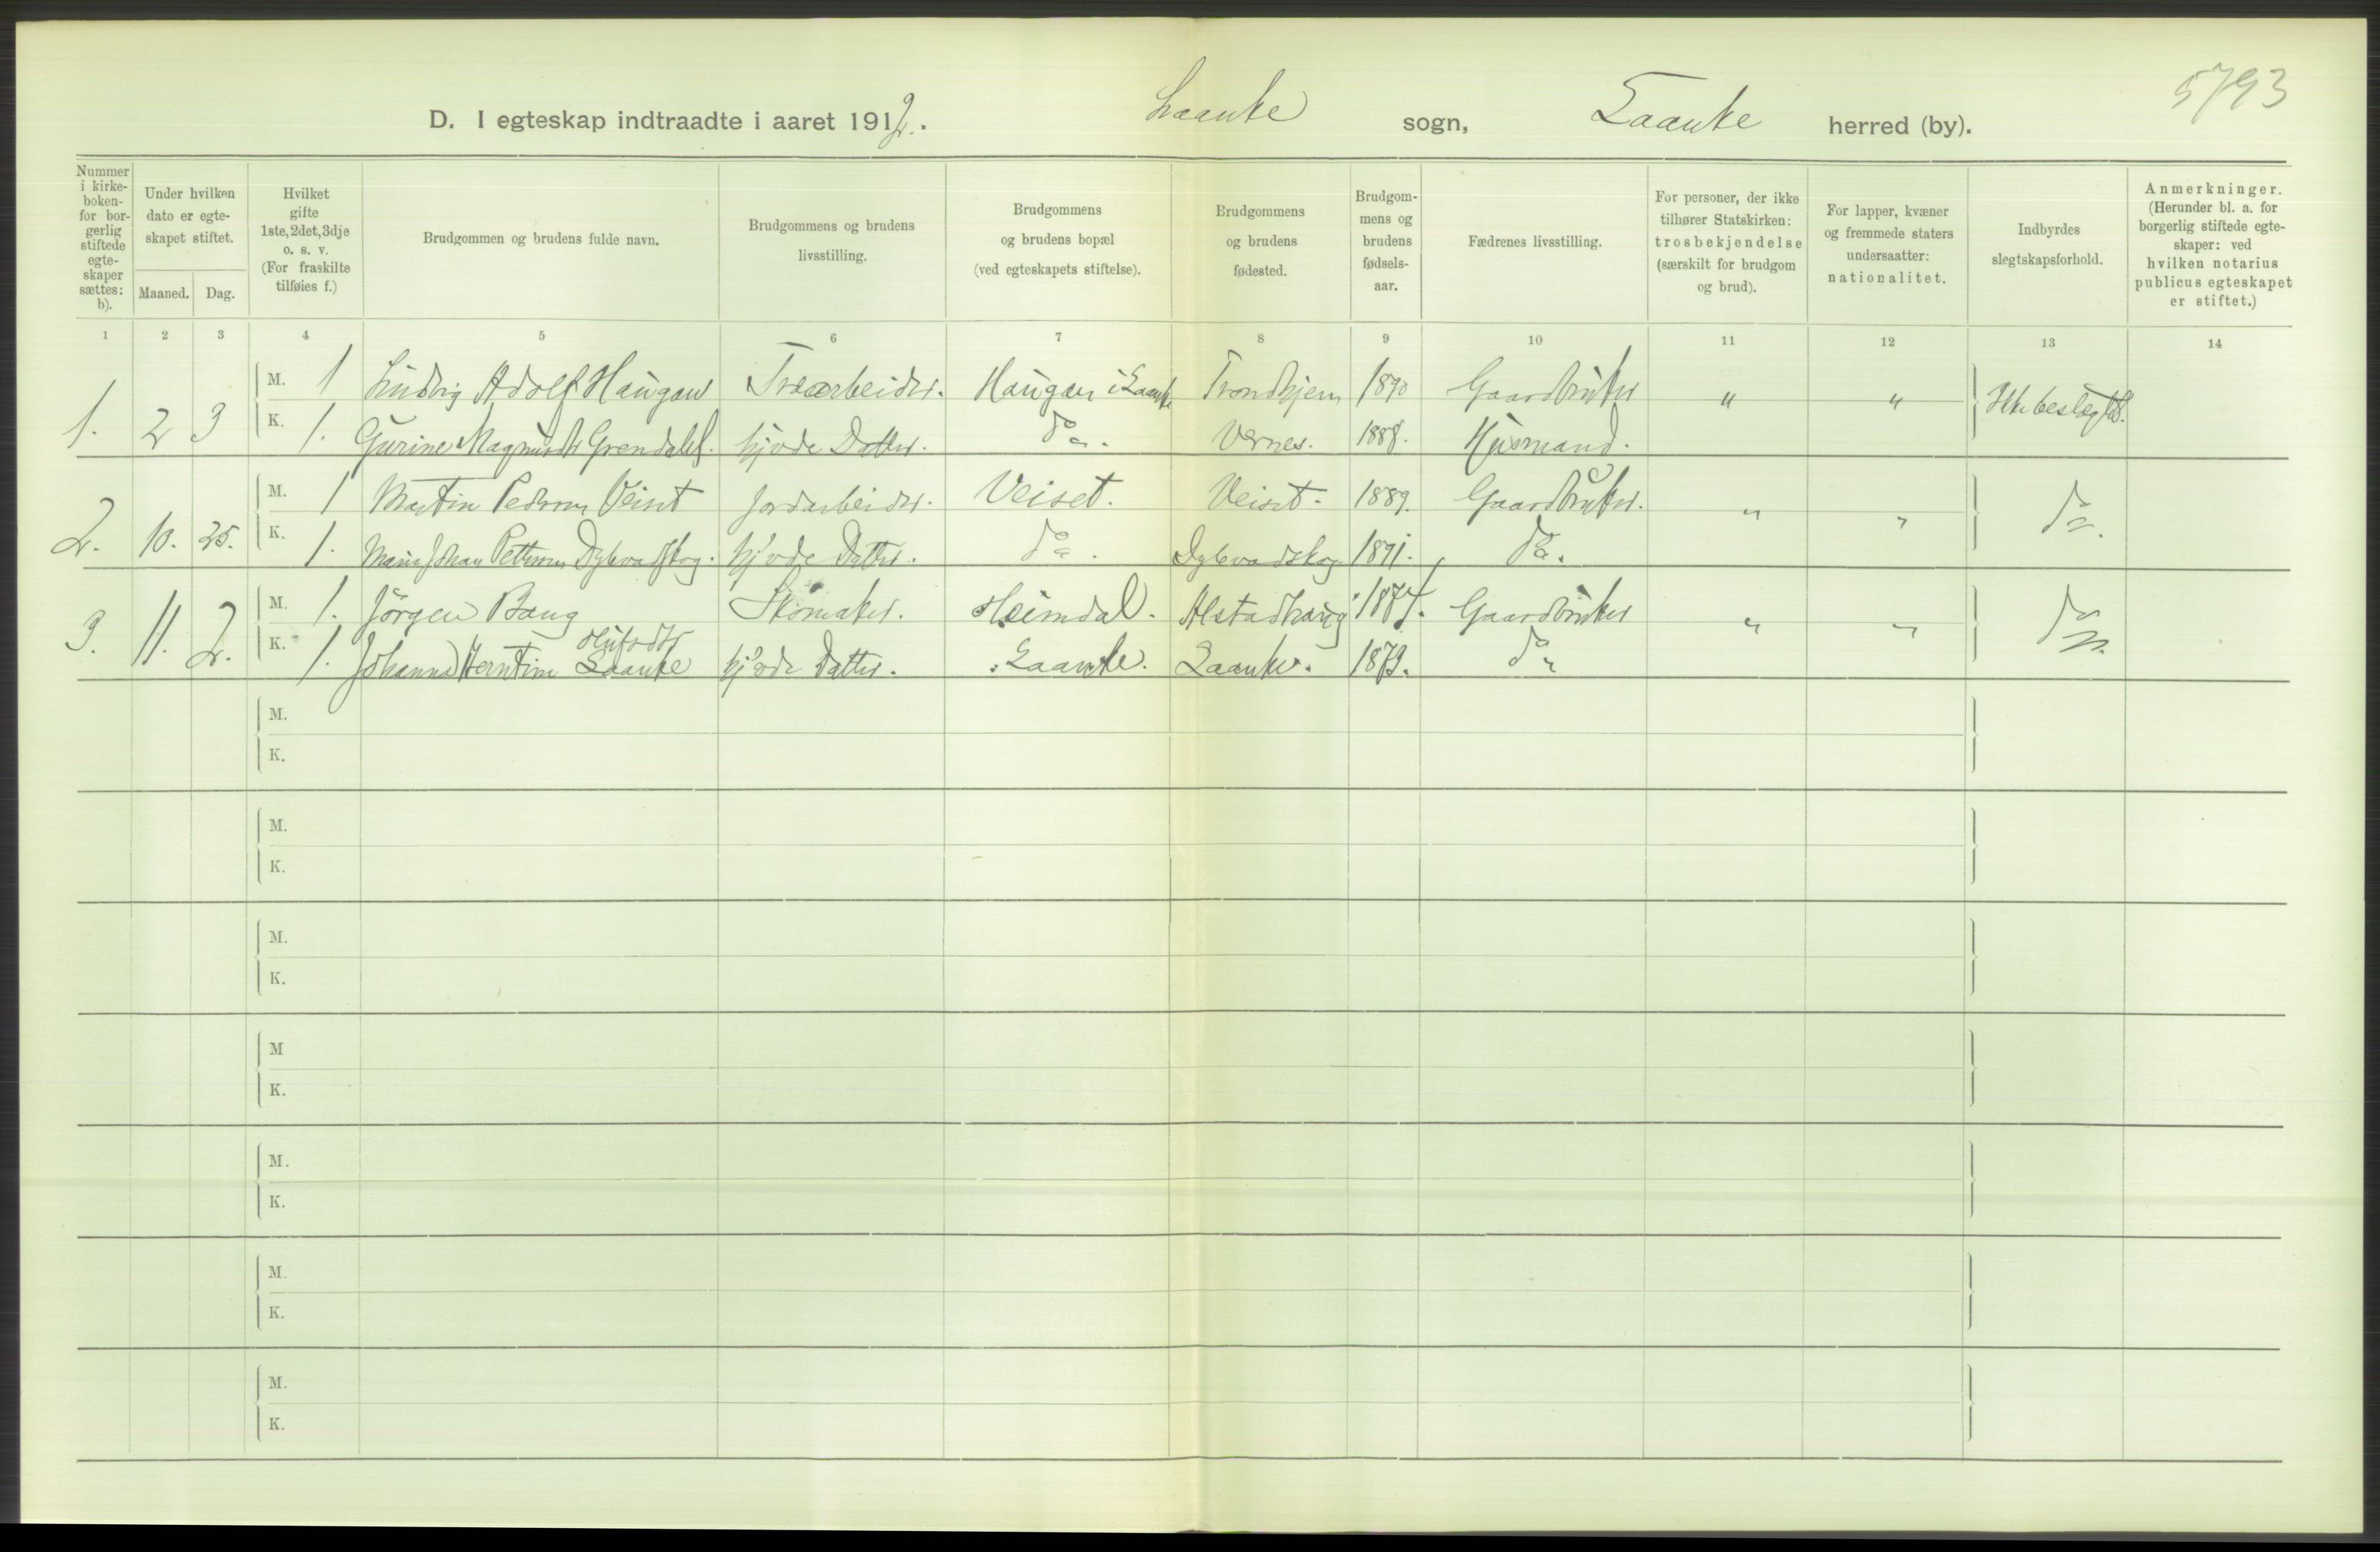 5793
D. I egteskap indtraadte i aaret 1912. Laanke sogn, Laanke herred (by).
Nummer i kirke-boken- for bor-gerlig stiftede egte-skaper sættes: b).
Under hvilken dato er egte-skapet stiftet.
Maaned. Dag.
Hvilket gifte 1ste, 2det, 3dje o. s. v. (For fraskilte tilføies f.)
Brudgommen og brudens fulde navn.
Brudgommens og brudens livsstilling.
Brudgommens og brudens bopæl (ved egteskapets stiftelse).
Brudgommens og brudens fødested.
Brudgom-mens og brudens fødsels-aar.
Fædrenes livsstilling.
For personer, der ikke tilhører Statskirken: trosbekjendelse (særskilt for brudgom og brud).
For lapper, kvæner og fremmede staters undersaatter: nationalitet.
Indbyrdes slegtskapsforhold.
Anmerkninger. (Herunder bl. a. for borgerlig stiftede egte-skaper: ved hvilken notarius publicus egteskapet er stiftet.)
1 2 3 4 5 6 7 8 9 10 11 12 13 14
1. 2 3 M. 1 Ludvig Adolf Haugan Træarbeider. Haugan i Laanke Trondhjem 1890 Gaardbruker " " Ikke beslegtet.
K. 1. Gurine Magnusdtr Grendahl. hjvde Datter. do. Vernes. 1888. Husmand.
2. 10. 25. M. 1 Martin Pedersen Veiset Jordarbeider. Veiset. Veiset. 1889. Gaardbruker. " " do.
K. 1. Petersen Dybvadskog. hjvde Datter. do. Dybvadskog 1891. do.
3. 11. 2. M. 1. Jörgen Bang Skomaker. Heimdal. Alstadhaug 1874. Gaardbruker " " do.
K. 1. Johanna Laanke hjvde Datter. Laanke. Laanke. 1879. do
M.
K.
M.
K.
M.
K.
M
K.
M.
K.
M.
K.
M.
K.